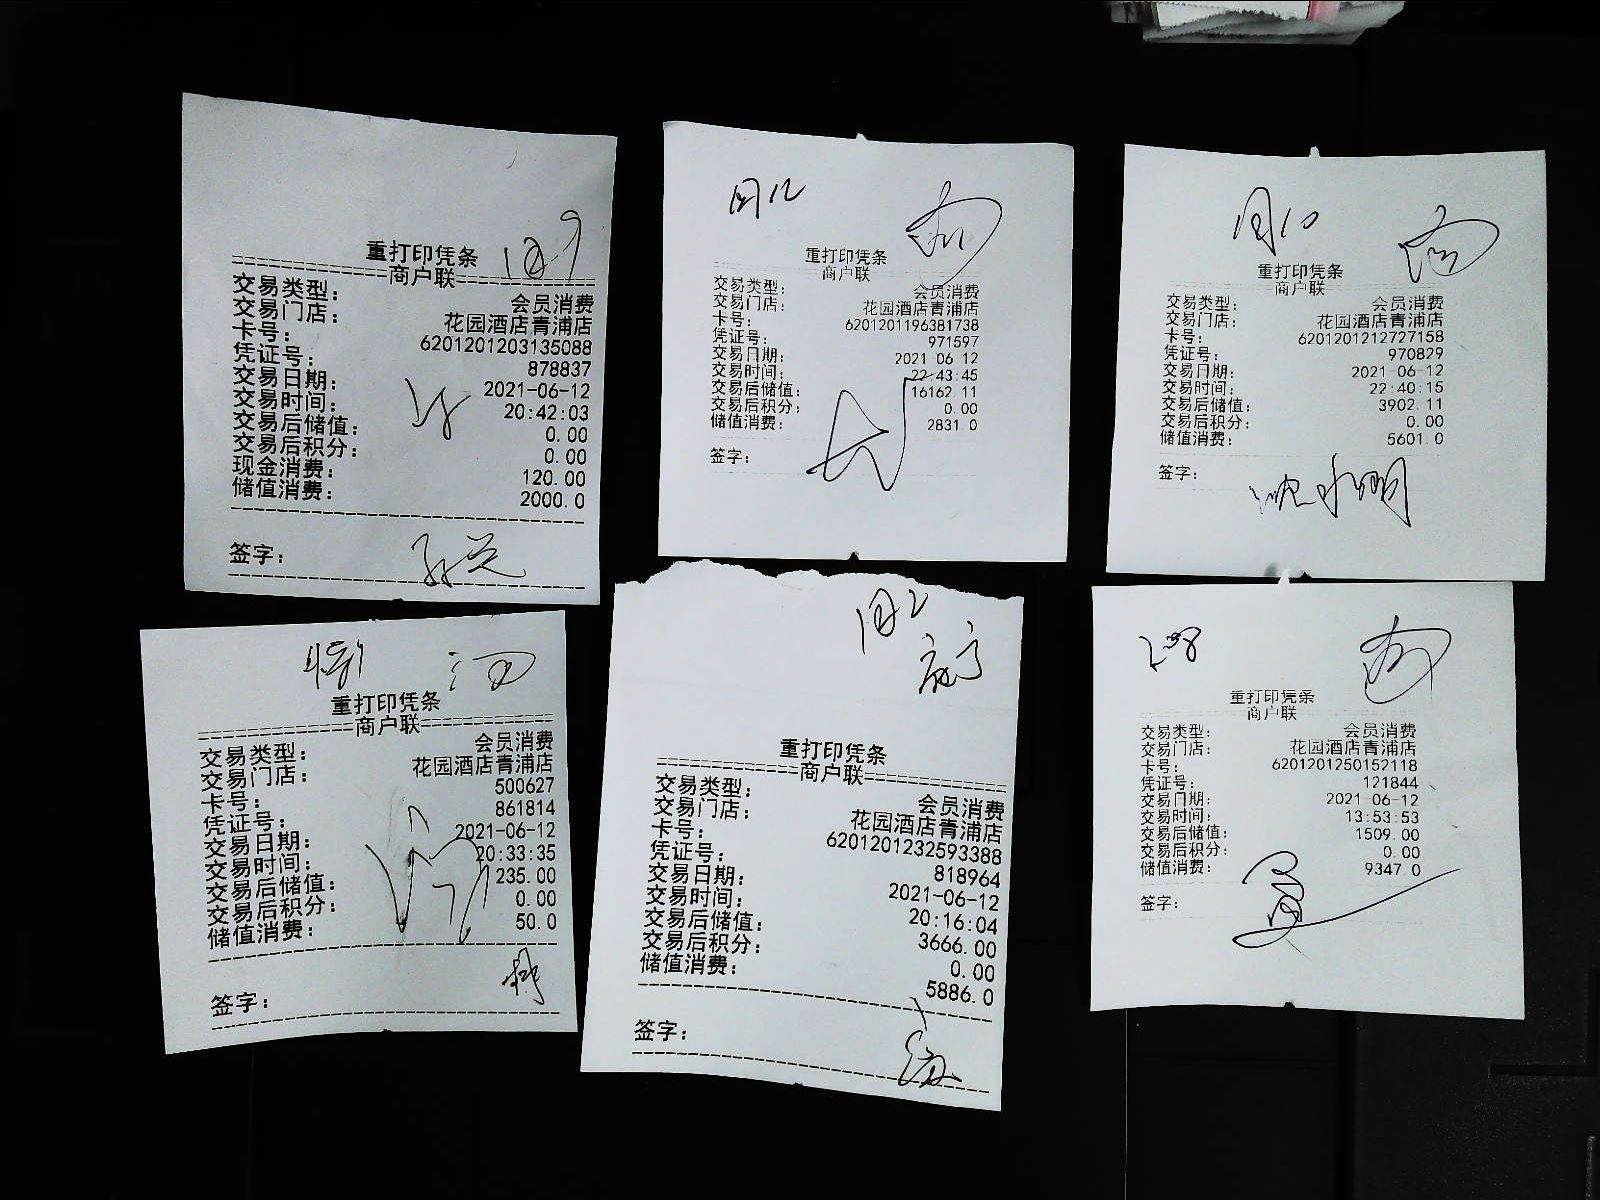 重打印凭条
商户联
交易类型： 会员消费
交易门店： 花园酒店青浦店
卡号： 6201201203135088
凭证号： 878837
交易日期： 2021-06-12
交易时间： 20:42:03
交易后储值： 0.00
交易后积分： 0.00
现金消费： 120.00
储值消费： 2000.0
签字：
周12
重打印凭条
商户联
交易类型： 会员消费
交易门店： 花园酒店青浦店
卡号： 6201201196381738
凭证号： 971597
交易日期： 2021 06 12
交易时间： 22:43:45
交易后储值： 16162.11
交易后积分： 0.00
储值消费： 2831.0
签字：
周10
重打印凭条
商户联
交易类型： 会员消费
交易门店： 花园酒店青浦店
卡号： 6201201212727158
凭证号： 970829
交易日期： 2021-06-12
交易时间： 22:40:15
交易后储值： 3902.11
交易后积分： 0.00
储值消费： 5601.0
签字：
重打印凭条
商户联
交易类型： 会员消费
交易门店： 花园酒店青浦店
卡号： 500627
凭证号： 861814
交易日期： 2021-06-12
交易时间： 20:33:35
交易后储值： 235.00
交易后积分： 0.00
储值消费： 50.0
签字：
重打印凭条
商户联
交易类型： 会员消费
交易门店： 花园酒店青浦店
卡号： 6201201232593388
凭证号： 818964
交易日期： 2021-06-12
交易时间： 20:16:04
交易后储值： 3666.00
交易后积分： 0.00
储值消费： 5886.0
签字：
208
重打印凭条
商户联
交易类型： 会员消费
交易门店： 花园酒店青浦店
卡号： 6201201250152118
凭证号： 121844
交易日期： 2021-06-12
交易时间： 13:53:53
交易后储值： 1509.00
交易后积分： 0.00
储值消费： 9347.0
签字：